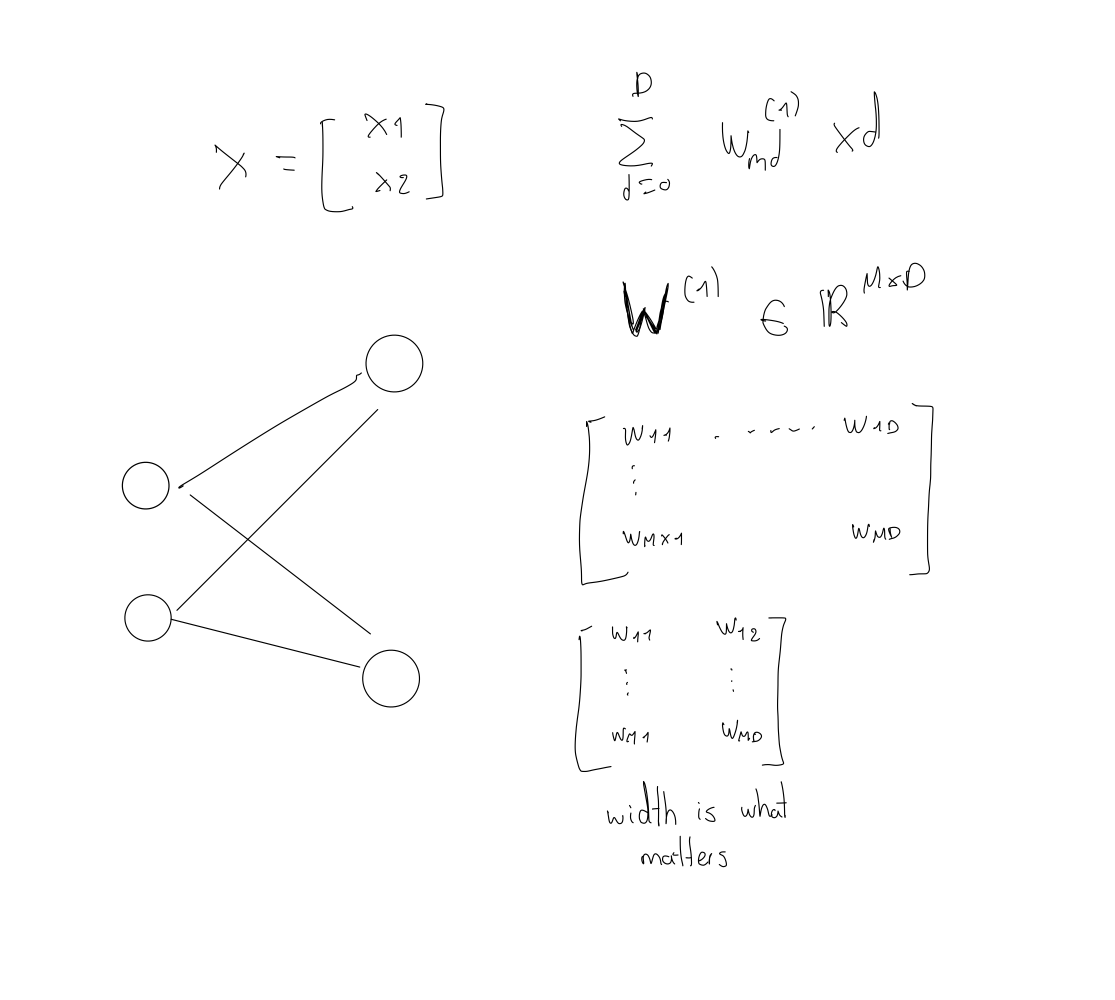 x = [ x1
x2 ]
D
∑ w_md^(1) xd
d=0
W^(1) ∈ ℝ^M×D
[ w11 . - - - . w1D ]
⋮
wM×1 wMD
[ w11 w12 ]
⋮ ⋮
wM1 wMD
width is what
matters